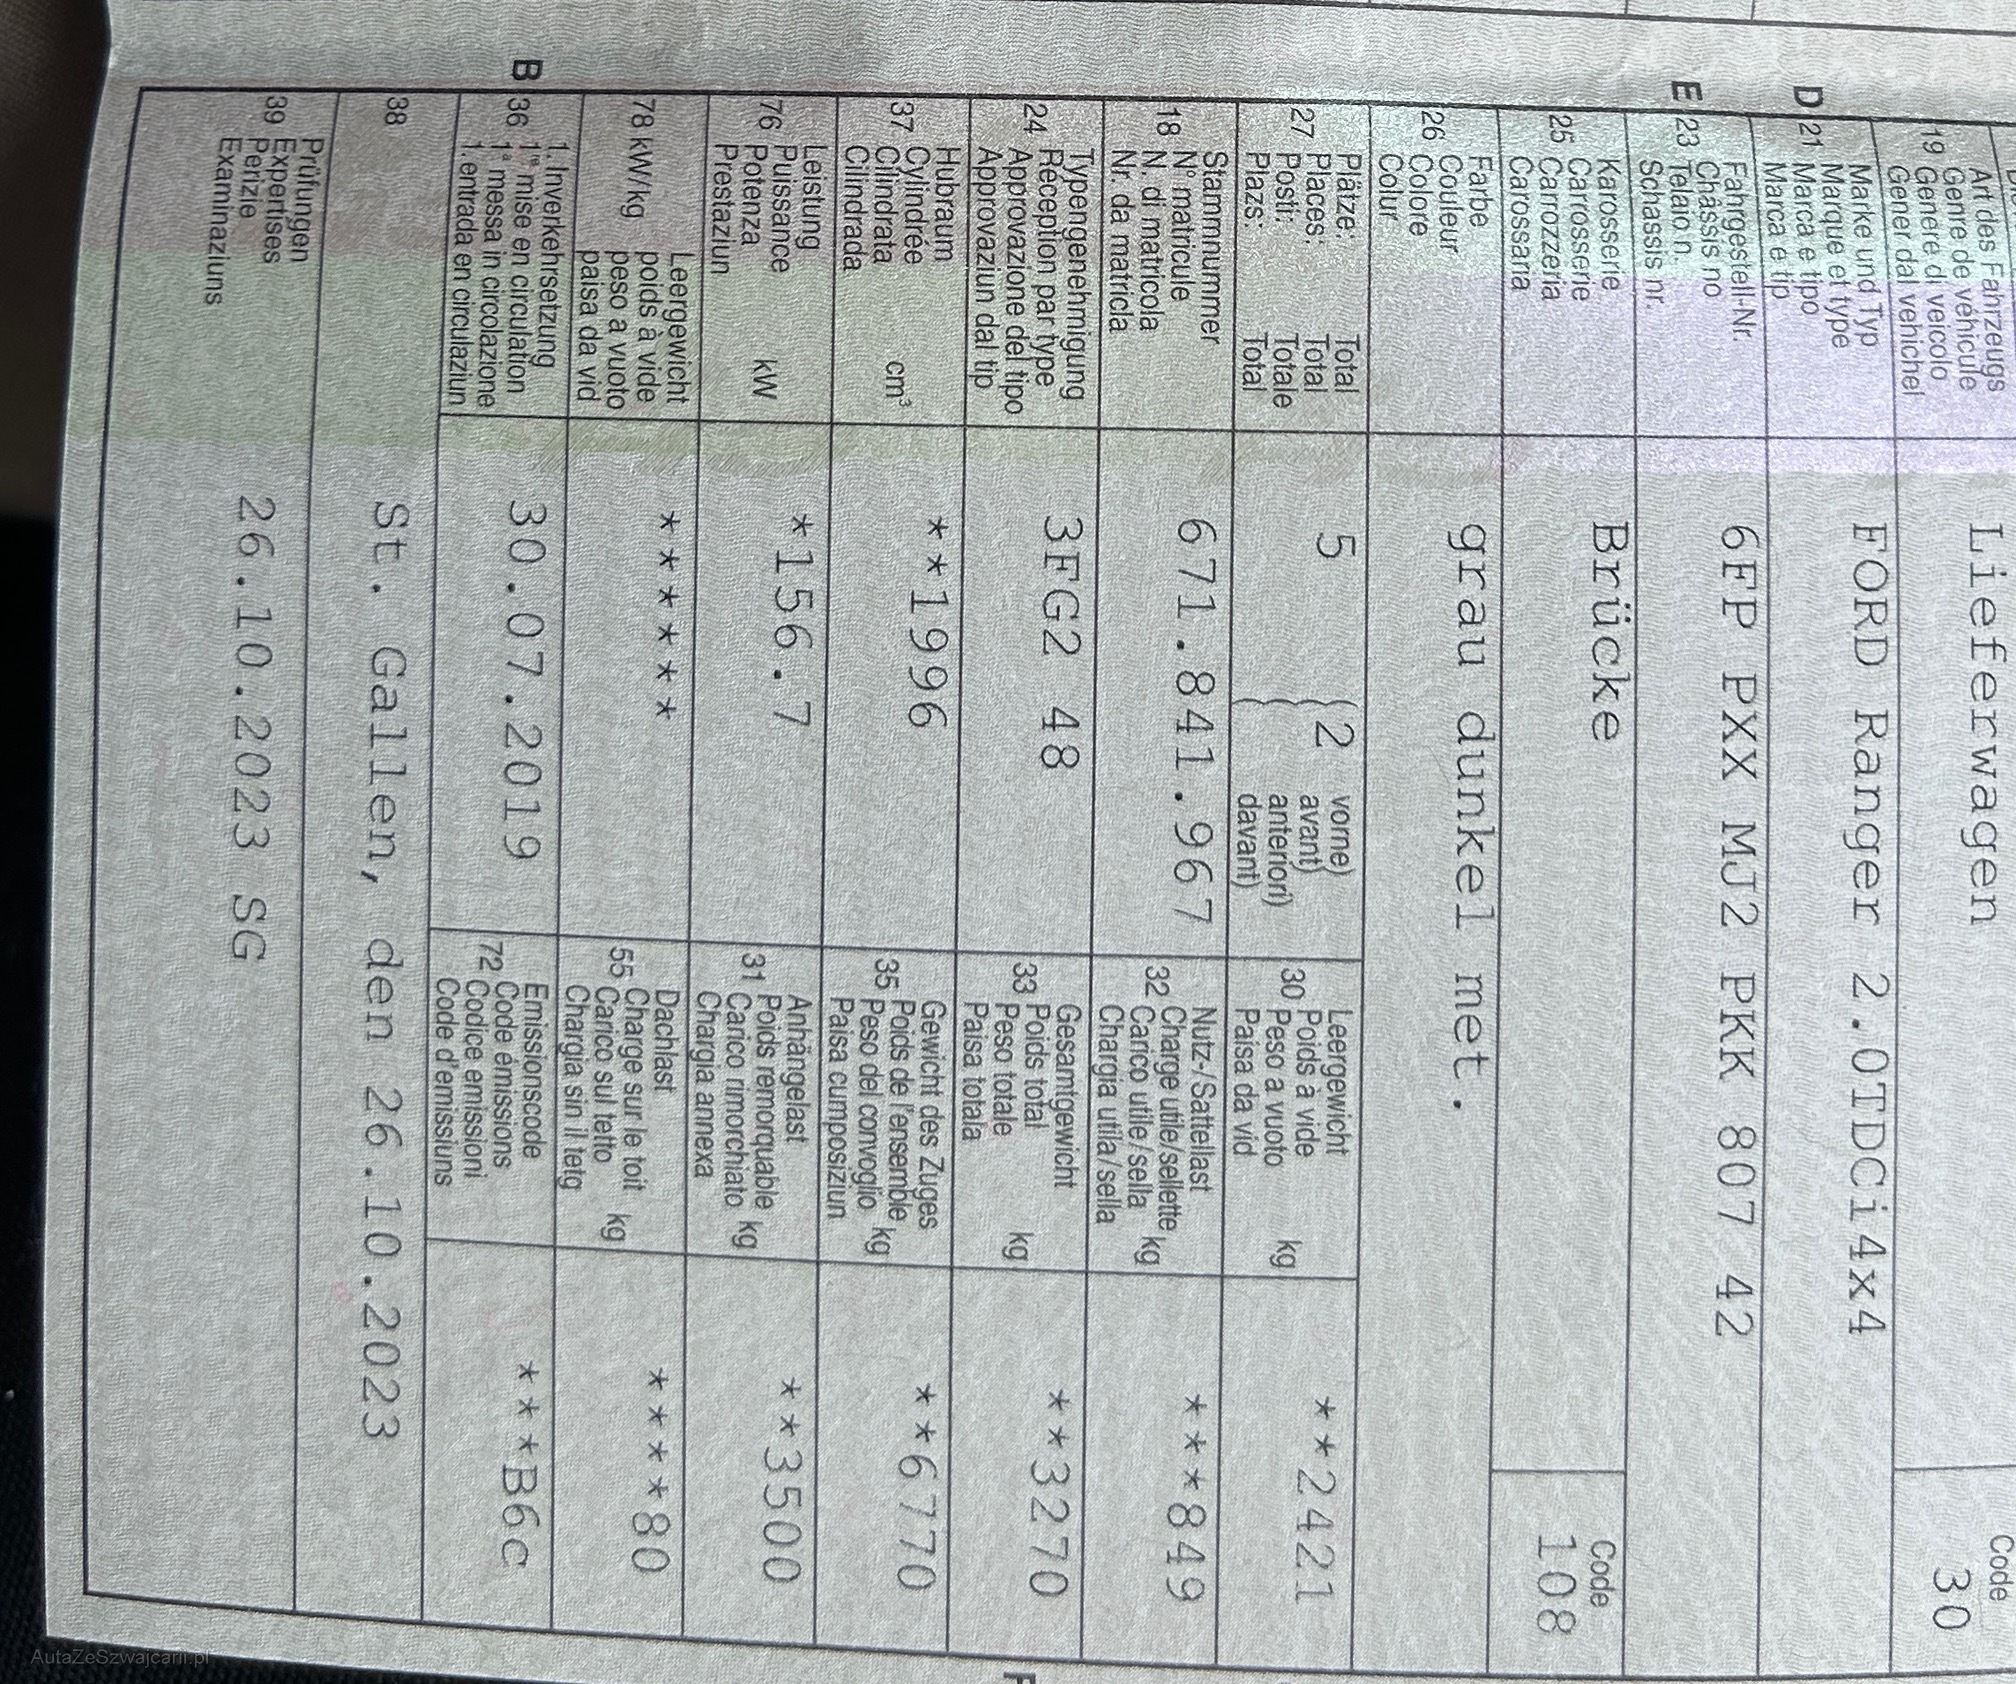 Art des Fahrzeugs
Genre de véhicule
19 Genere di veicolo
Gener dal vehichel
Lieferwagen
Code
30
Marke und Typ
Marque et type
D 21 Marca e tipo
Marca e tip
FORD Ranger 2.0TDCi4x4
Fahrgestell-Nr.
Châssis no
E 23 Telaio n.
Schassis nr.
6FP PXX MJ2 PKK 807 42
Karosserie
Carrosserie
25 Carrozzeria
Carossaria
Brücke
Code
108
Farbe
Couleur
26 Colore
Colur
grau dunkel met.
Plätze: Total
Places: Total
27 Posti: Totale
Plazs: Total
5
2
vorne)
avant)
anteriori)
davant)
Leergewicht
Poids à vide
30 Peso a vuoto kg
Paisa da vid
**2421
Stammnummer
N° matricule
18 N. di matricola
Nr. da matricla
671.841.967
Nutz-/Sattellast
Charge utile/sellette
32 Carico utile/sella kg
Chargia utila/sella
***849
Typengenehmigung
Réception par type
24 Approvazione del tipo
Approvaziun dal tip
3FG2 48
Gesamtgewicht
Poids total
33 Peso totale kg
Paisa totala
**3270
Hubraum
Cylindrée
37 Cilindrata cm³
Cilindrada
**1996
Gewicht des Zuges
Poids de l'ensemble
35 Peso del convoglio kg
Paisa cumposiziun
**6770
Leistung
Puissance
76 Potenza kW
Prestaziun
*156.7
Anhängelast
Poids remorquable
31 Carico rimorchiato kg
Chargia annexa
**3500
Leergewicht
poids à vide
78 kW/kg peso a vuoto
paisa da vid
******
Dachlast
Charge sur le toit
55 Carico sul tetto kg
Chargia sin il tetg
****80
1. Inverkehrsetzung
1re mise en circulation
B 36 1a messa in circolazione
1. entrada en circulaziun
30.07.2019
Emissionscode
Code émissions
72 Codice emissioni
Code d'emissiuns
***B6c
38
St. Gallen, den 26.10.2023
Prüfungen
Expertises
39 Perizie
Examinaziuns
26.10.2023 SG
AutaZeSzwajcarii.pl